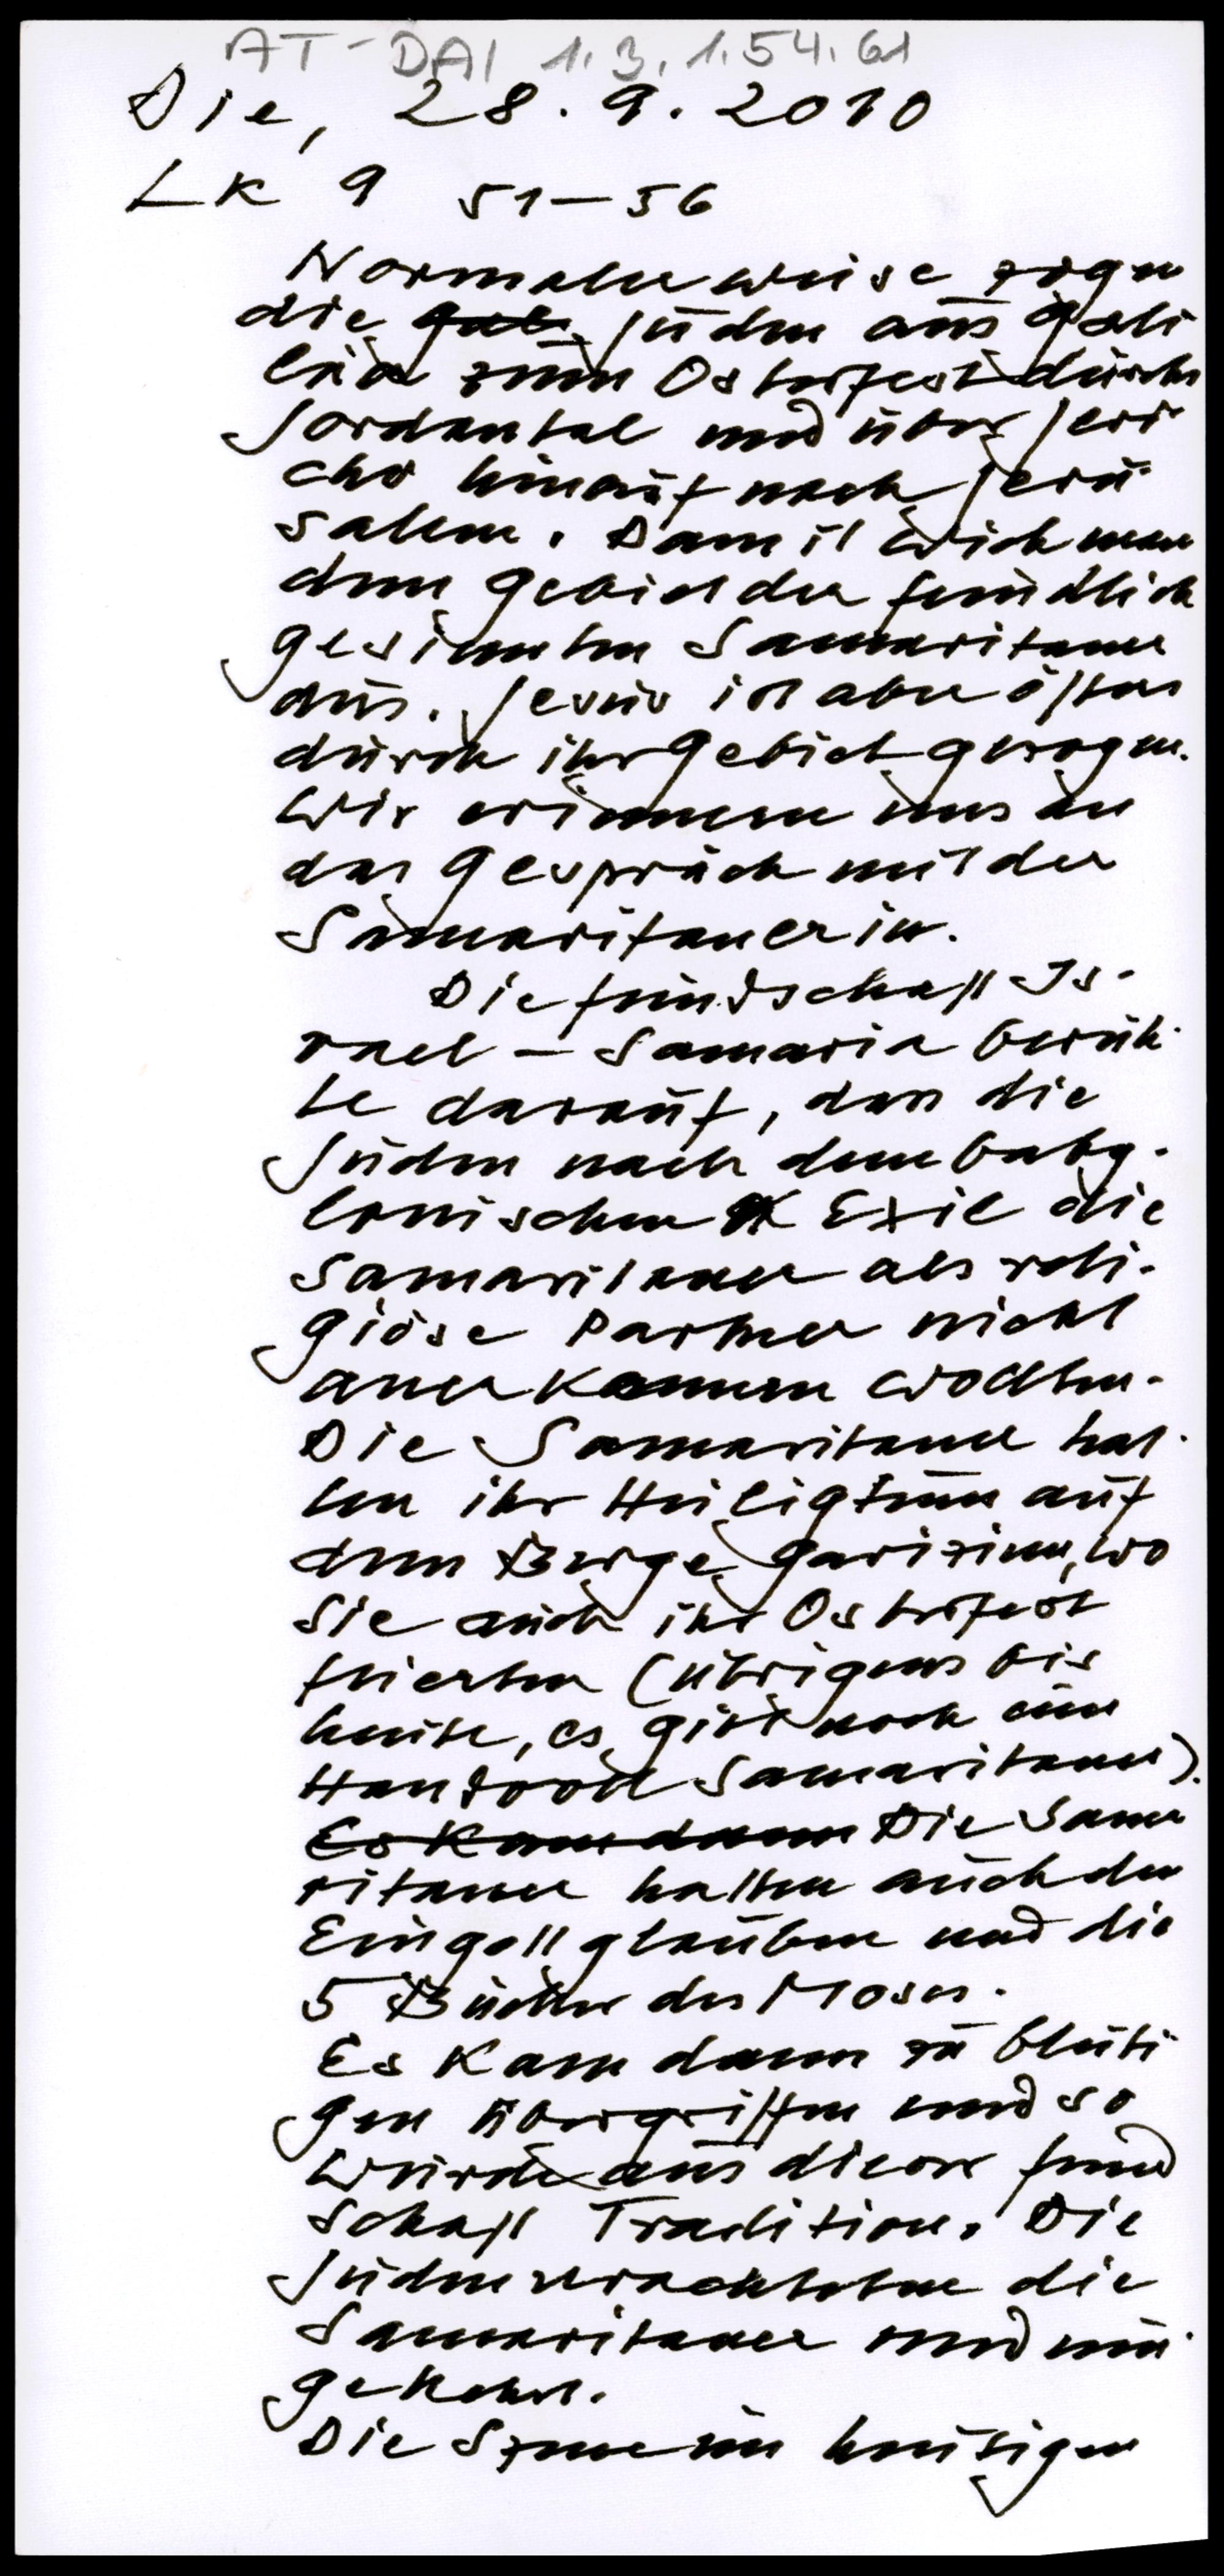 AT-DAI 1.3.1.54.61
Die, 28.9.2010
Lk 9 51-56
Normalerweise zogen
die Gal. Juden aus Gali
läa zum Osterfest durchs
Jordantal und über Jeri
cho hinauf nach Jeru
salem. Damit wich man
dem Gebiet der feindlich
gesinnten Samaritaner
aus. Jesus ist aber öfters
durch ihr Gebiet gezogen.
Wir erinnern uns an
das Gespräch mit der
Samaritanerin.
Die Feindschaft Is-
rael - Samaria beruh-
te darauf, dass die
Juden nach dem baby-
lonischen Exil die
Samaritaner als reli-
giöse Partner nicht
anerkennen wollten.
Die Samaritaner hat-
ten ihr Heiligtum auf
dem Berge Garizim, wo
sie auch ihr Osterfest
feierten (übrigens bis
heute, es gibt noch eine
Handvoll Samaritaner).
Es kam dann Die Sama
ritaner hatten auch den
Eingottglauben und die
5 Bücher des Moses.
Es kam dann zu bluti
gen Übergriffen und so
wurde aus dieser Feind
schaft Tradition. Die
Juden verachteten die
Samaritaner und um-
gekehrt.
Die Szene im heutigen